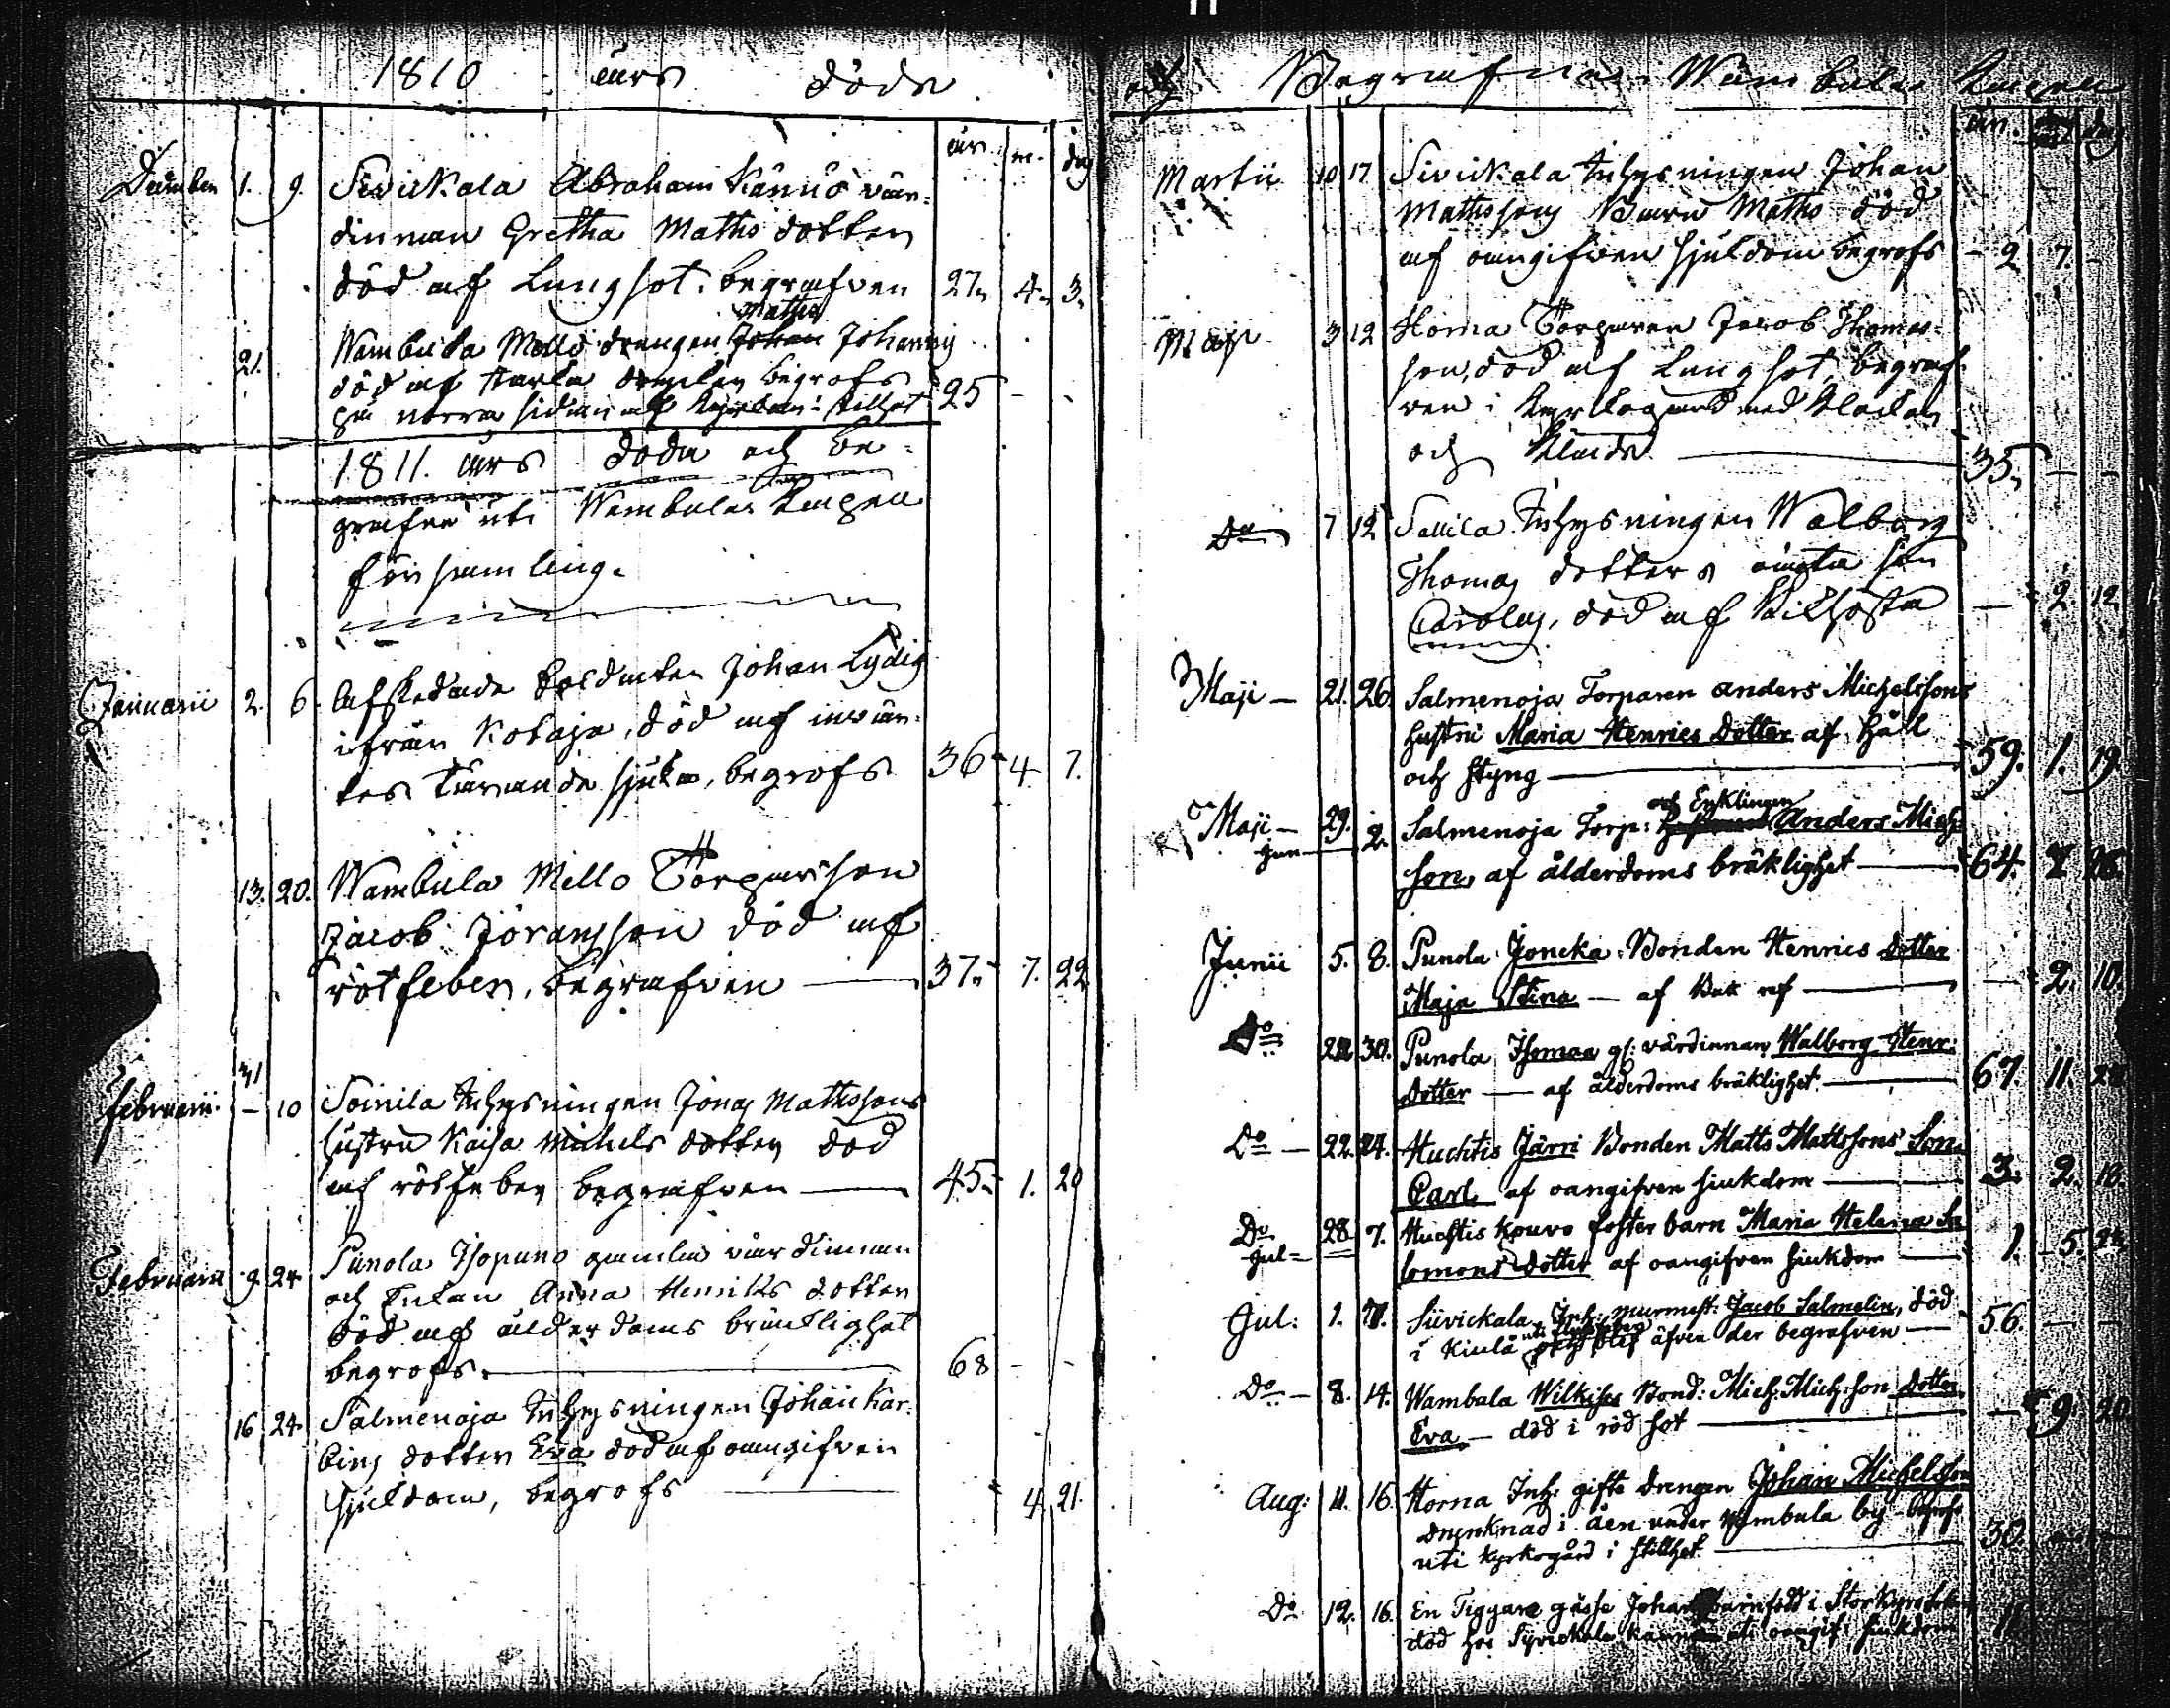 1810 års döde
år. m. dag
December 1. 9. Siwickala Abraham Kännö vär-
dinnan Gretha Maths dotter
död af Lungsot. begrafven 27. 4. 3.
Maths
21. Wambula Mello drengen Johan Johansson
död af starka begrofs
på norra sidan af Kyrkan i stillhet 25 - -
1811. års döda och be-
grafne uti Wambula Capell
församling.
Januarii 2. 6. Afskedade Soldaten Johan Lydig
ifrån Kotaja, död af invär-
tes tärande sjuka, begrofs 36 4 7.
13. 20. Wambula Mello Torparsson
Jacob Jöransson död af
rötfeber, begrafven — 37. 7. 22
31
Februarii. — 10 Soinila Inhysningen Jonas Mathssons
hustru Kaisa Michels dotter död
af rötfeber begrafven — 45. 1. 20
Februarii 9. 24 Punola Isopuno gamla värdinnan
och Enkan Anna Henriks dotter
död af ålderdoms bräcklighet
begrofs. — 68 - -
16 24 Salmenoja Inhysningen Johan Kar-
dotter Eva död af oangifven
sjukdom, begrofs — 4. 21.
och Begrafne i Wambula Capell
år. dag
Martii 10 17 Siwickala Inhysningen Johan
Mathssons Barn Maths död
af oangifven sjukdom begrofs - 2 7. -
Maji 3 12 Horna Torparen Jacob Thomas-
son, död af Lungsot, begraf-
ven i Kyrkogård med Klockan
och Kläde — 35. — —
Do 7 12 Sallila Inhysningen Walborg
Thomas dotters oäkta son
Carolus, död af Kikhosta — 2. 12
Maji — 21. 26. Salmenoja Torparen Anders Michelssons
hustru Maria Henrics Dotter af håll
och styng — 59. 1. 19.
och Enklingen
Maji — 29. Salmenoja Torp: Anders Mich:
Jun — 2. son, af ålderdoms bräklighet — 64. 2 26.
Junii 5. 8. Punola Joncka Bonden Henrics Dotter
Maja Stina — af — — 2. 10.
Do 22 30. Punola Isomaa gl: värdinnan Walborg Henr:
Dotter — af ålderdoms bräklighet. — 67. 11. 28
Do — 22. 24. Huchtis Järri Bonden Matts Mattssons Son
Carl af oangifven siukdom — 3. 2. 18
Do 28 7. Huchtis Kouvo foster barn Maria Helena Sa
Jul = lomons Dotter af oangifven siukdom — 1. 5. 22
Jul: 1. 7. Siivickala Inh: murmest: Jacob Salmelin, död
i Kiula och blef äfven der begrafven — 56. — —
Do — 8. 14. Wambula Wilkiss Bond: Mich: Mich:son Dotter
Eva — död i röd sot — — 9. 20
Aug: 11. 16. Horna Inh: gifte drengen Johan Michelsson
drunknad i åen under Wambula by — begrofs
uti kyrkogård i stillhet — 30.
Do 12. 16. En Tiggare gåsse Johan barnfödd i Storkyro
död hos Sijvickala uti oangif: siukdom 11